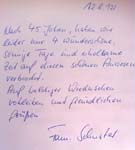 12.8.
Nach 45 Jahren, haben wir
leider nur 4 wunderschöne,
sonnige Tage und erholsame
Zeit auf diesem schönen
verbracht.
Auf baldiges Wiedersehen
verbleiben mit freundlichen
Grüßen
Fam. Schuster